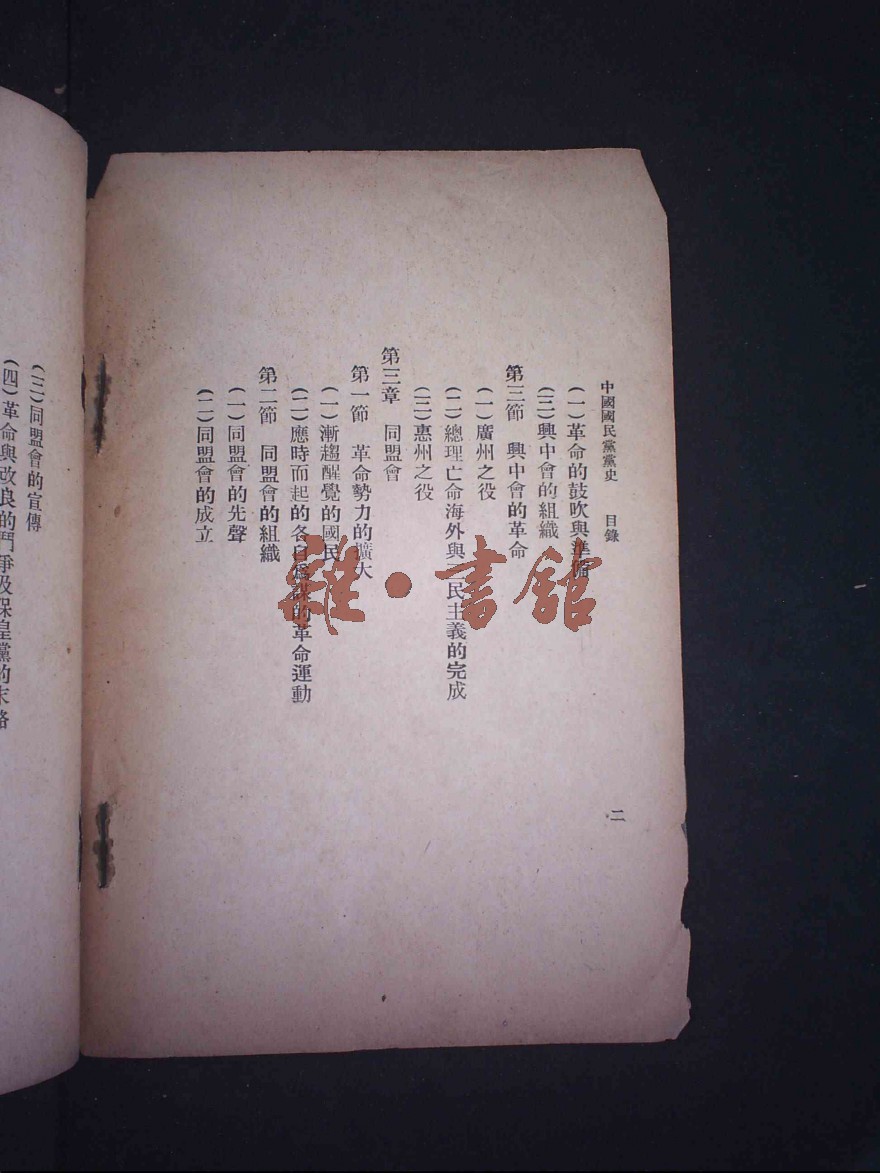 中國國民黨黨史 目錄
二
(一)革命的鼓吹與準備
(三)興中會的組織
第三節 興中會的革命
(一)廣州之役
(二)總理亡命海外與三民主義的完成
(三)惠州之役
第三章 同盟會
第一節 革命勢力的擴大
(一)漸趨醒覺的國民
(二)應時而起的各自爲謀的革命運動
第二節 同盟會的組織
(一)同盟會的先聲
(二)同盟會的成立
(三)同盟會的宣傳
(四)革命與改良的鬥爭及保皇黨的末路
雜·書館